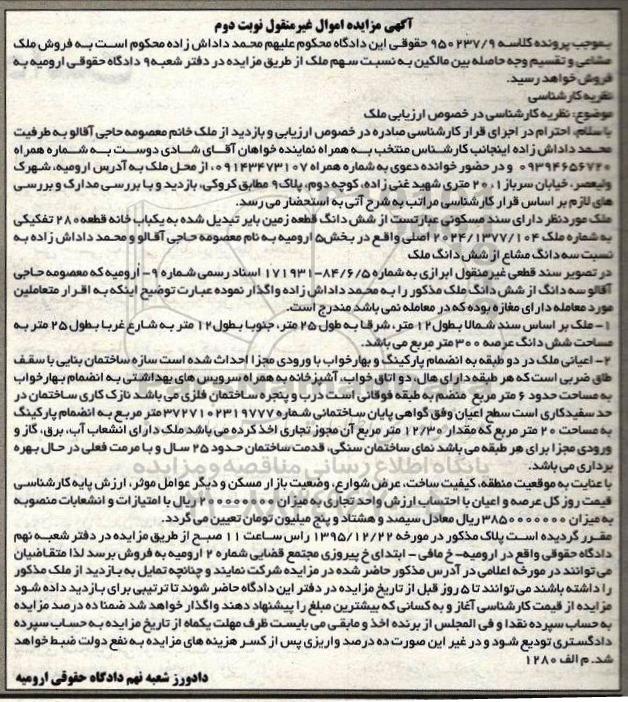 آگهی مزایده اموال غیرمنقول نوبت دوم
بموجب پرونده کلاسه ۹۵۰۲۳۷/۹ حقوقی این دادگاه محکوم علیهم محمد داداش زاده محکوم است به فروش ملک
مشاعی و تقسیم وجه حاصله بین مالکین به نسبت سهم ملک از طریق مزایده در دفتر شعبه۹ دادگاه حقوقی ارومیه به
فروش خواهد رسید.
نظریه کارشناسی
موضوع: نظریه کارشناسی در خصوص ارزیابی ملک
با سلام، احترام در اجرای قرار کارشناسی صادره در خصوص ارزیابی و بازدید از ملک خانم معصومه حاجی آقالو به طرفیت
محمد داداش زاده اینجانب کارشناس منتخب به همراه نماینده خواهان آقای شادی دوست به شماره همراه
۰۹۳۹۴۶۵۶۷۲۰ و در حضور خوانده دعوی به شماره همراه ۰۹۱۴۳۴۷۳۱۰۷، از محل ملک به آدرس ارومیه، شهرک
ولیعصر، خیابان سرباز ۱، ۲۰ متری شهید غنی زاده، کوچه دوم، پلاک۹ مطابق کروکی، بازدید و با بررسی مدارک و بررسی
های لازم بر اساس قرار کارشناسی مراتب به شرح آتی به استحضار می رسد.
ملک موردنظر دارای سند مسکونی عبارتست از شش دانگ قطعه زمین بایر تبدیل شده به یکباب خانه قطعه۲۸۰ تفکیکی
به شماره ملک ۲۰۲۴/۱۳۷۷/۱۰۴ اصلی واقع در بخش۵ ارومیه به نام معصومه حاجی آقالو و محمد داداش زاده به
نسبت سه دانگ مشاع از شش دانگ ملک
در تصویر سند قطعی غیرمنقول ابرازی به شماره ۸۴/۶/۵-۱۷۱۹۳۱ اسناد رسمی شماره ۹- ارومیه که معصومه حاجی
آقالو سه دانگ از شش دانگ ملک مذکور را به محمد داداش زاده واگذار نموده عبارت توضیح اینکه به اقرار متعاملین
مورد معامله دارای مغازه بوده که در معامله نمی باشد مندرج است.
۱- ملک بر اساس سند شمالا بطول۱۲ متر، شرقا به طول ۲۵ متر، جنوبا بطول۱۲ متر به شارع غربا بطول ۲۵ متر به
مساحت شش دانگ عرصه ۳۰۰ متر مربع می باشد.
۲- اعیانی ملک در دو طبقه به انضمام پارکینگ و بهارخواب با ورودی مجزا احداث شده است سازه ساختمان بنایی با سقف
طاق ضربی است که هر طبقه دارای هال، دو اتاق خواب، آشپزخانه به همراه سرویس های بهداشتی به انضمام بهارخواب
به مساحت حدود ۶ متر مربع منضم به طبقه فوقانی است درب و پنجره ساختمان فلزی می باشد نازک کاری ساختمان در
حد سفیدکاری است سطح اعیان وفق گواهی پایان ساختمانی شماره ۳۷۲۷۱۰۲۳۱۹۷۷۷ متر مربع به انضمام پارکینگ
به مساحت ۲۰ متر مربع که مقدار ۱۲/۳۰ متر مربع آن مجوز تجاری اخذ کرده می باشد ملک دارای انشعاب آب، برق، گاز و
ورودی مجزا برای هر طبقه می باشد نمای ساختمان سنگی، قدمت ساختمان حدود ۲۵ سال و با مرمت فعلی در حال بهره
برداری می باشد.
با عنایت به موقعیت منطقه، کیفیت ساخت، عرض شوارع، وضعیت بازار مسکن و دیگر عوامل موثر، ارزش پایه کارشناسی
قیمت روز کل عرصه و اعیان با احتساب ارزش واحد تجاری به میزان ۲۰۰۰۰۰۰۰۰۰ ریال با امتیازات و انشعابات منصوبه
به میزان ۳۸۵۰۰۰۰۰۰۰ ریال معادل سیصد و هشتاد و پنج میلیون تومان تعیین می گردد.
مقرر گردیده است پلاک مذکور در مورخه ۱۳۹۵/۱۲/۲۲ راس ساعت ۱۱ صبح از طریق مزایده در دفتر شعبه نهم
دادگاه حقوقی واقع در ارومیه- خ مافی - ابتدای خ پیروزی مجتمع قضایی شماره ۲ ارومیه به فروش برسد لذا متقاضیان
می توانند در مورخه اعلامی در آدرس مذکور حاضر شده در مزایده شرکت نمایند و چنانچه تمایل به بازدید از ملک مذکور
را داشته باشند می توانند تا ۵ روز قبل از تاریخ مزایده در دفتر این دادگاه حاضر شوند تا ترتیبی برای بازدید داده شود
مزایده از قیمت کارشناسی آغاز و به کسانی که بیشترین مبلغ را پیشنهاد دهند واگذار خواهد شد ضمنا ده درصد مزایده
به حساب سپرده نقدا و فی المجلس از برنده اخذ و مابقی می بایست ظرف مهلت یکماه از تاریخ مزایده به حساب سپرده
دادگستری تودیع شود و در غیر این صورت ده درصد واریزی پس از کسر هزینه های مزایده به نفع دولت ضبط خواهد
شد. م الف ۱۲۸۰
دادورز شعبه نهم دادگاه حقوقی ارومیه
پایگاه اطلاع رسانی مناقصه و مزایده